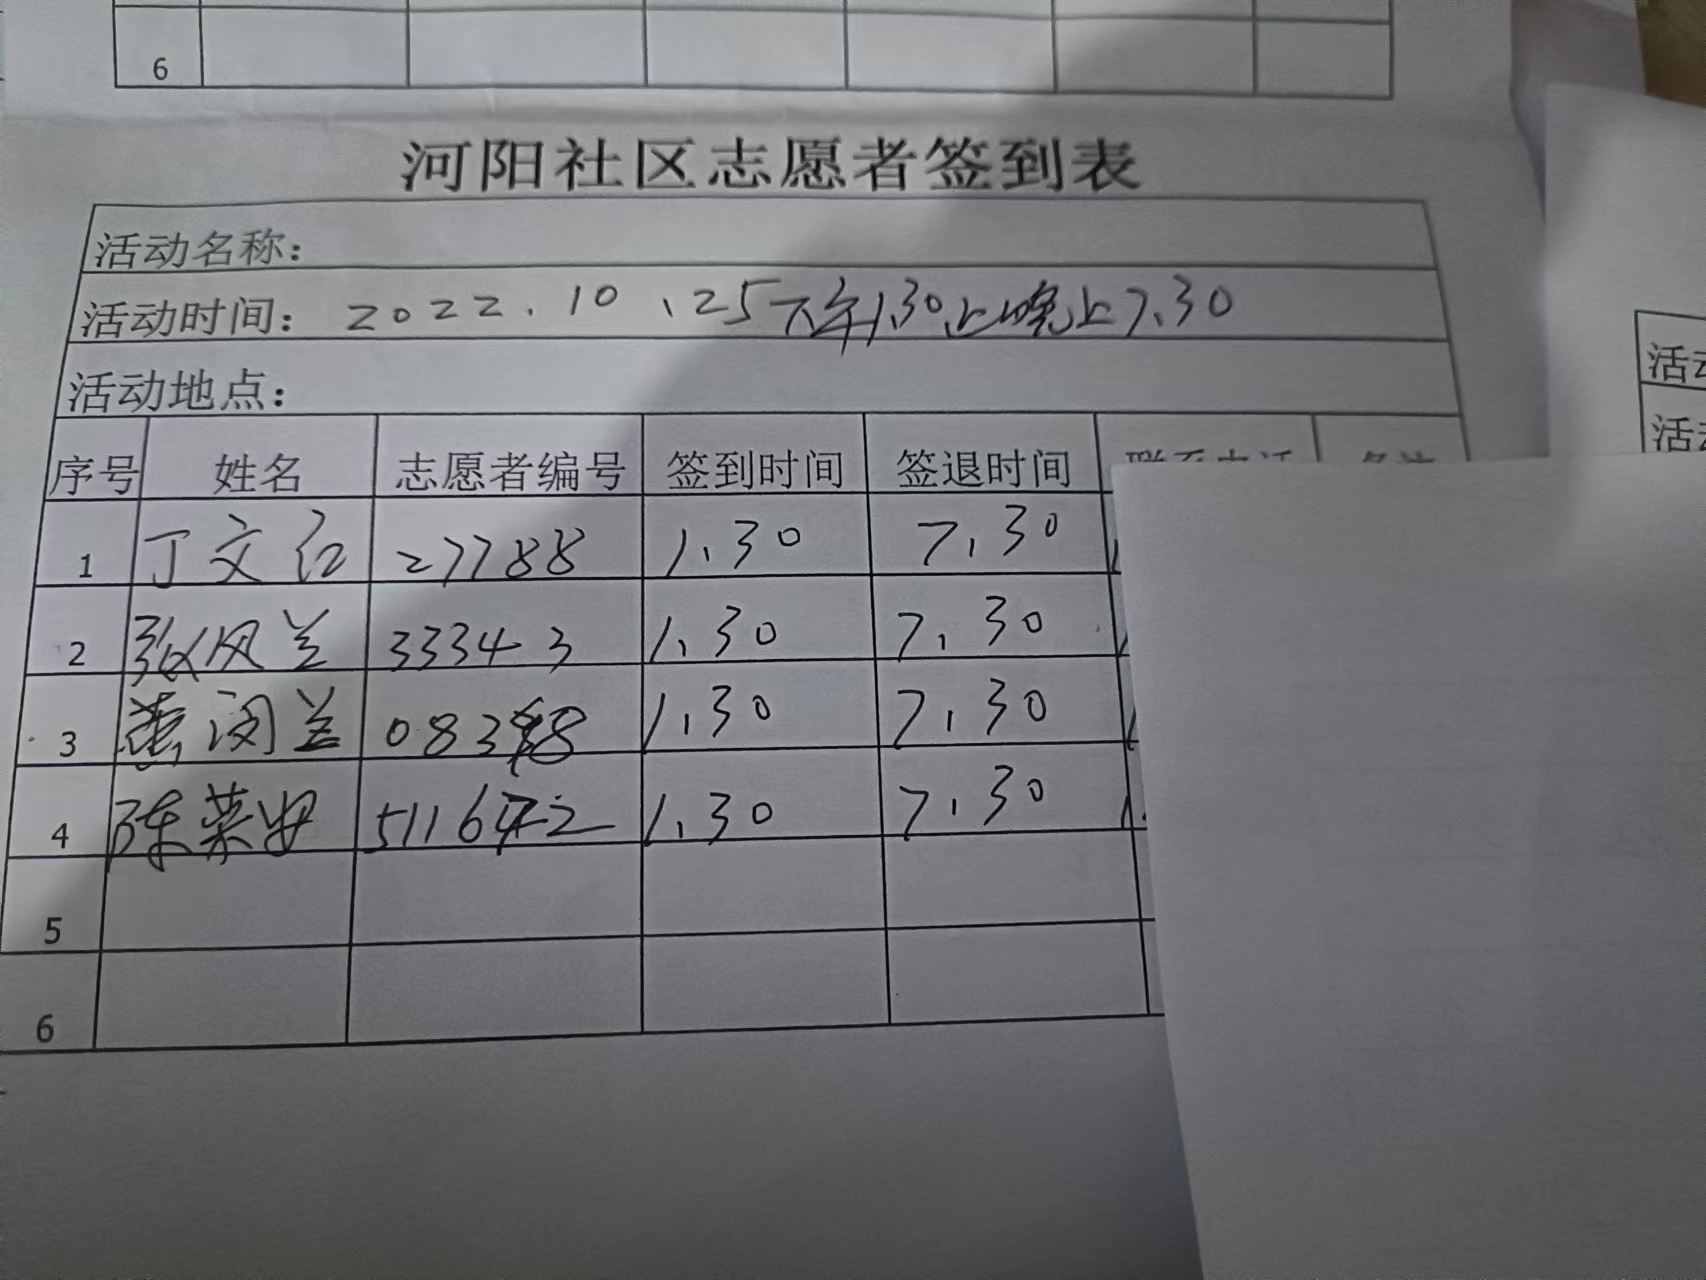 6
河阳社区志愿者签到表
活动名称：
活动时间：2022.10.25下午1.30 晚上7.30
活动地点：
序号 姓名 志愿者编号 签到时间 签退时间
1 丁文红 27788 1.30 7.30
2 张凤兰 33343 1.30 7.30
3 兰 1.30 7.30
4 陈菜 1.30 7.30
5
6
活动
活动